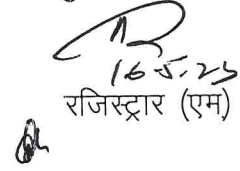 16-5-23
रजिस्ट्रार (एम)